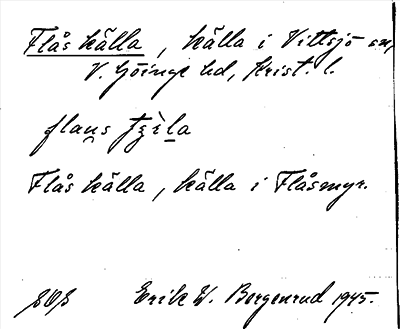 Flås källa, källa i Vittsjö sn,
V. Göinge hd, Krist. l.
flans
Flås källa, källa i Flåsmyr.
Erik W. Borgenrud 1945.